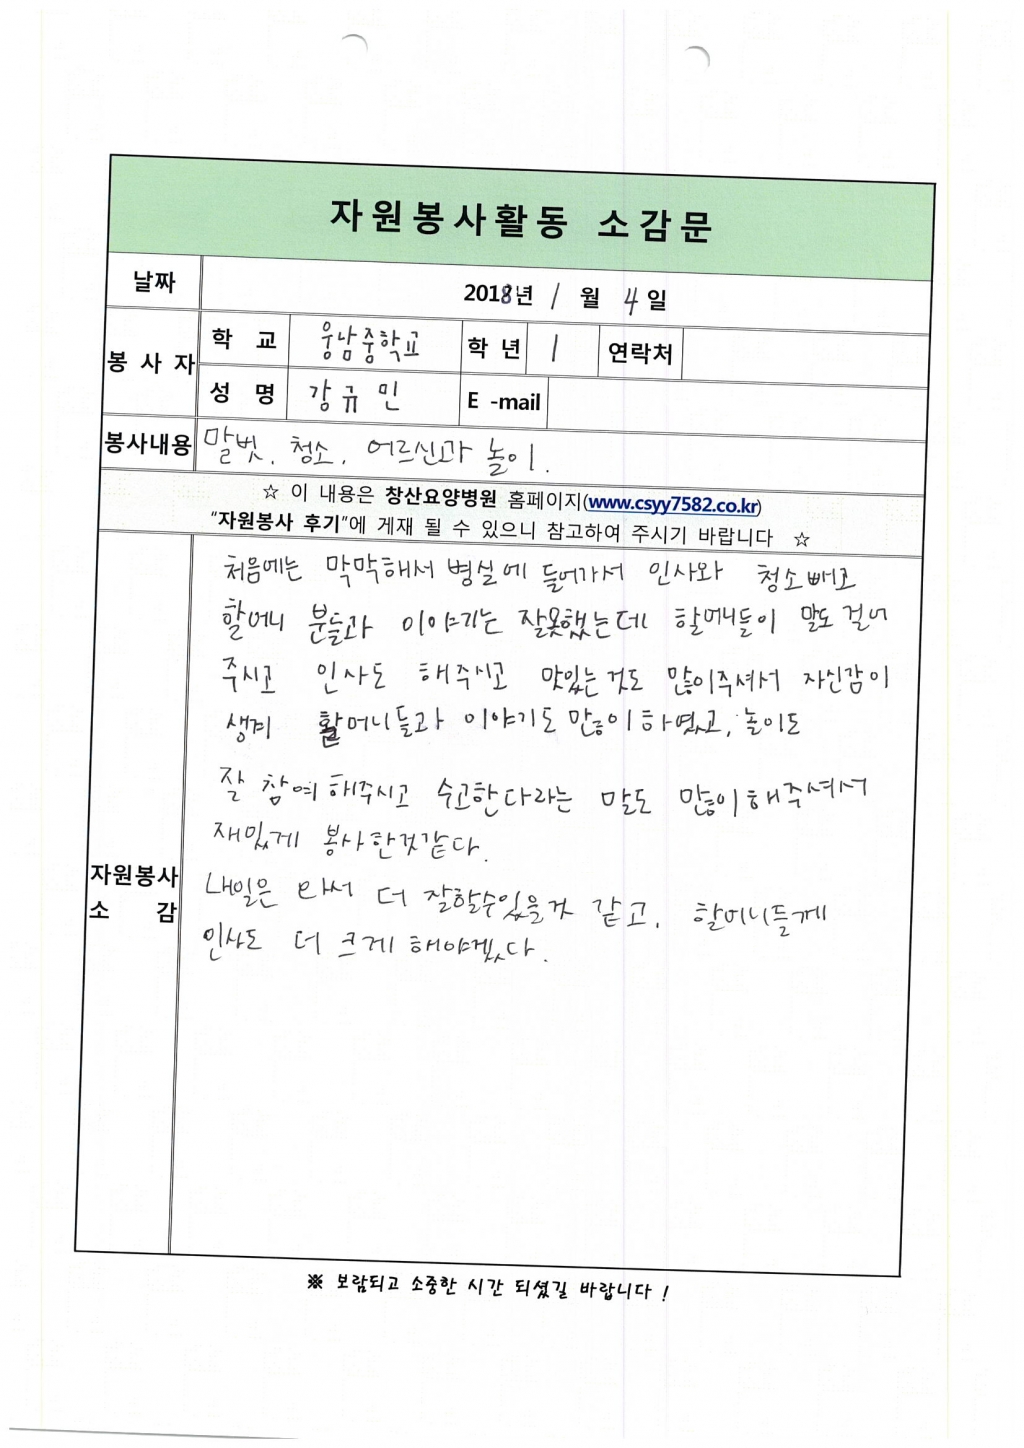 자원봉사활동 소감문
날짜 2018년 1 월 4 일
봉 사 자 학 교 웅남중학교 학 년 1 연락처
성 명 강규민 E -mail
봉사내용 말벗, 청소, 어르신과 놀이.
☆ 이 내용은 창산요양병원 홈페이지(www.csyy7582.co.kr)
"자원봉사 후기"에 게재 될 수 있으니 참고하여 주시기 바랍니다 ☆
처음에는 막막해서 병실에 들어가서 인사와 청소빼고
할머니 분들과 이야기는 잘못했는데 할머니들이 말도 걸어
주시고 인사도 해주시고 맛있는것도 많이주셔서 자신감이
생겨 할머니들과 이야기도 많이하였고, 놀이도
잘 참여해주시고 수고한다라는 말도 많이해주셔서
재밌게 봉사한것같다.
자원봉사 소 감
내일은 와서 더 잘할수있을거 같고, 할머니들께
인사도 더 크게 해야겠다.
※ 보람되고 소중한 시간 되셨길 바랍니다 !